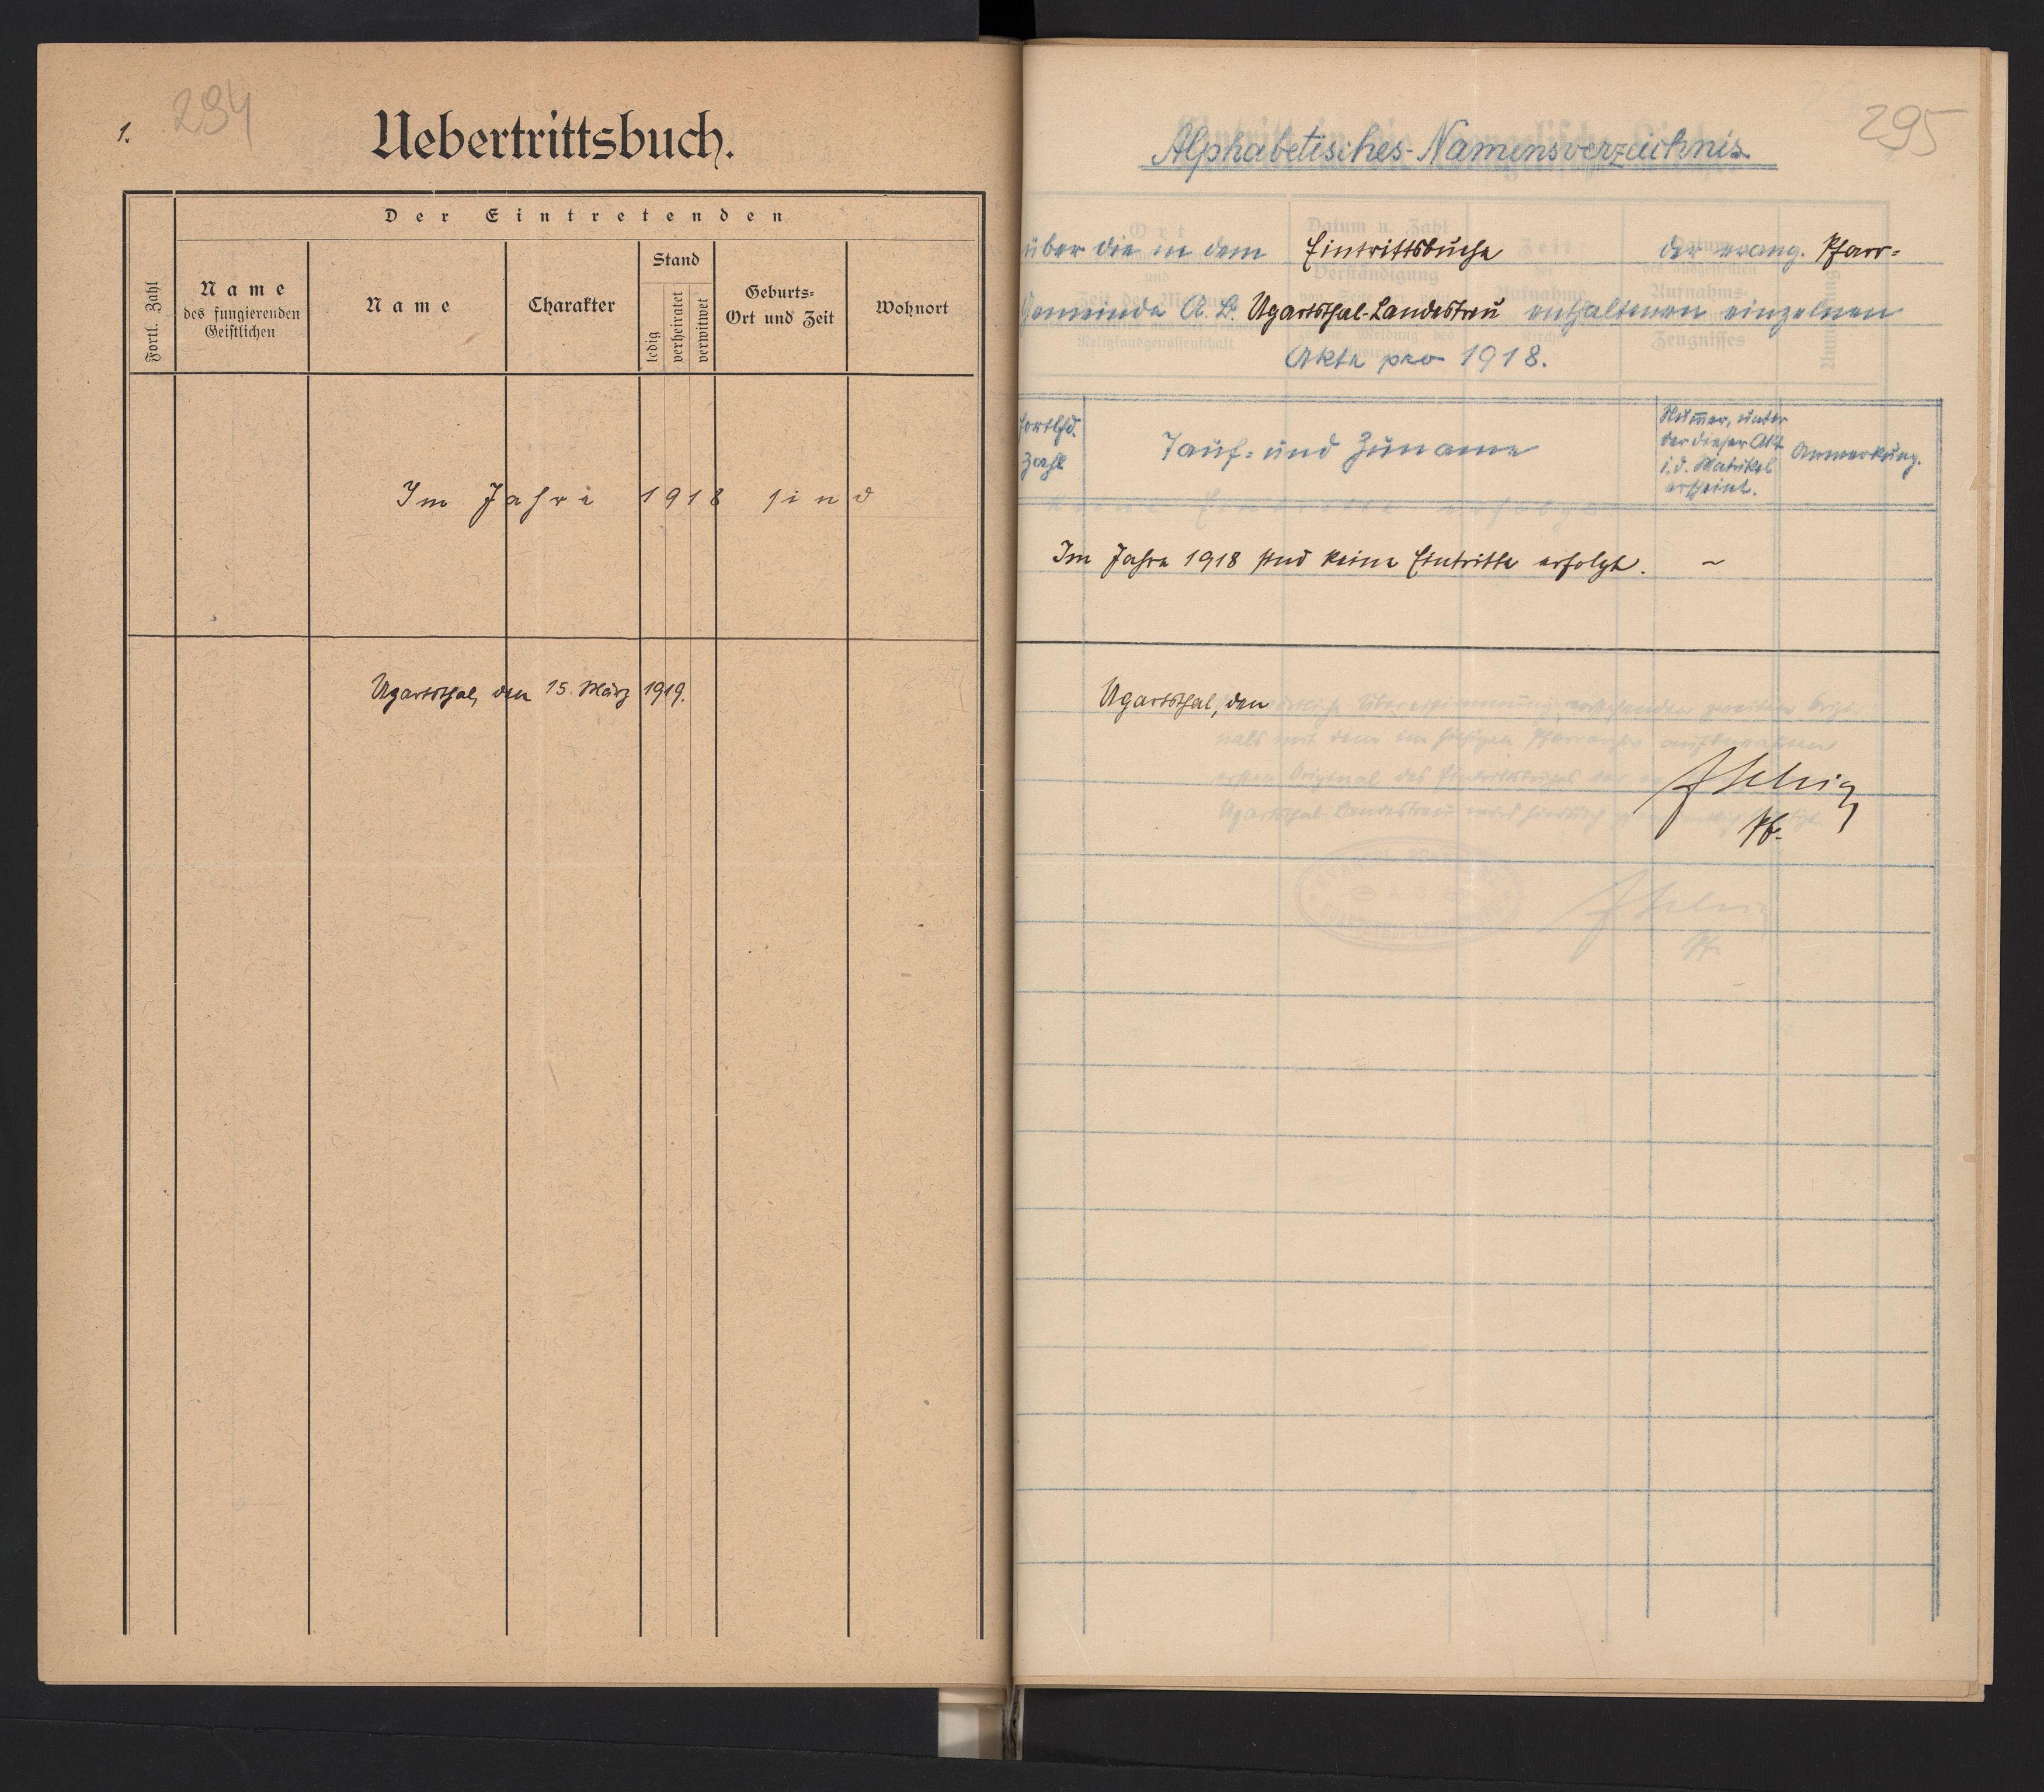 1.
294
Uebertrittsbuch.
Der Eintretenden
Fortl. Zahl
Name
des fungierenden
Geistlichen
Name
Charakter
Stand
ledig
verheiratet
verwitwet
Geburts-
Ort und Zeit
Wohnort
Im Jahre 1918 sind
Ugartsthal, den 15. März 1919.
295
Alphabetisches-Namensverzeichnis
über die in dem Eintrittsbuche der evang. Pfarr-
Gemeinde A. B. Ugartsthal-Landestreu enthaltenen einzelnen
Akte pro 1918.
Fortlfd.
Zahl
Tauf- und Zuname
Num̅er, unter
der dieser Akt
i. d. Matrikel
erscheint.
Anmerkung.
Im Jahre 1918 sind keine Eintritte erfolgt. ~
Ugartsthal, den
Pf.